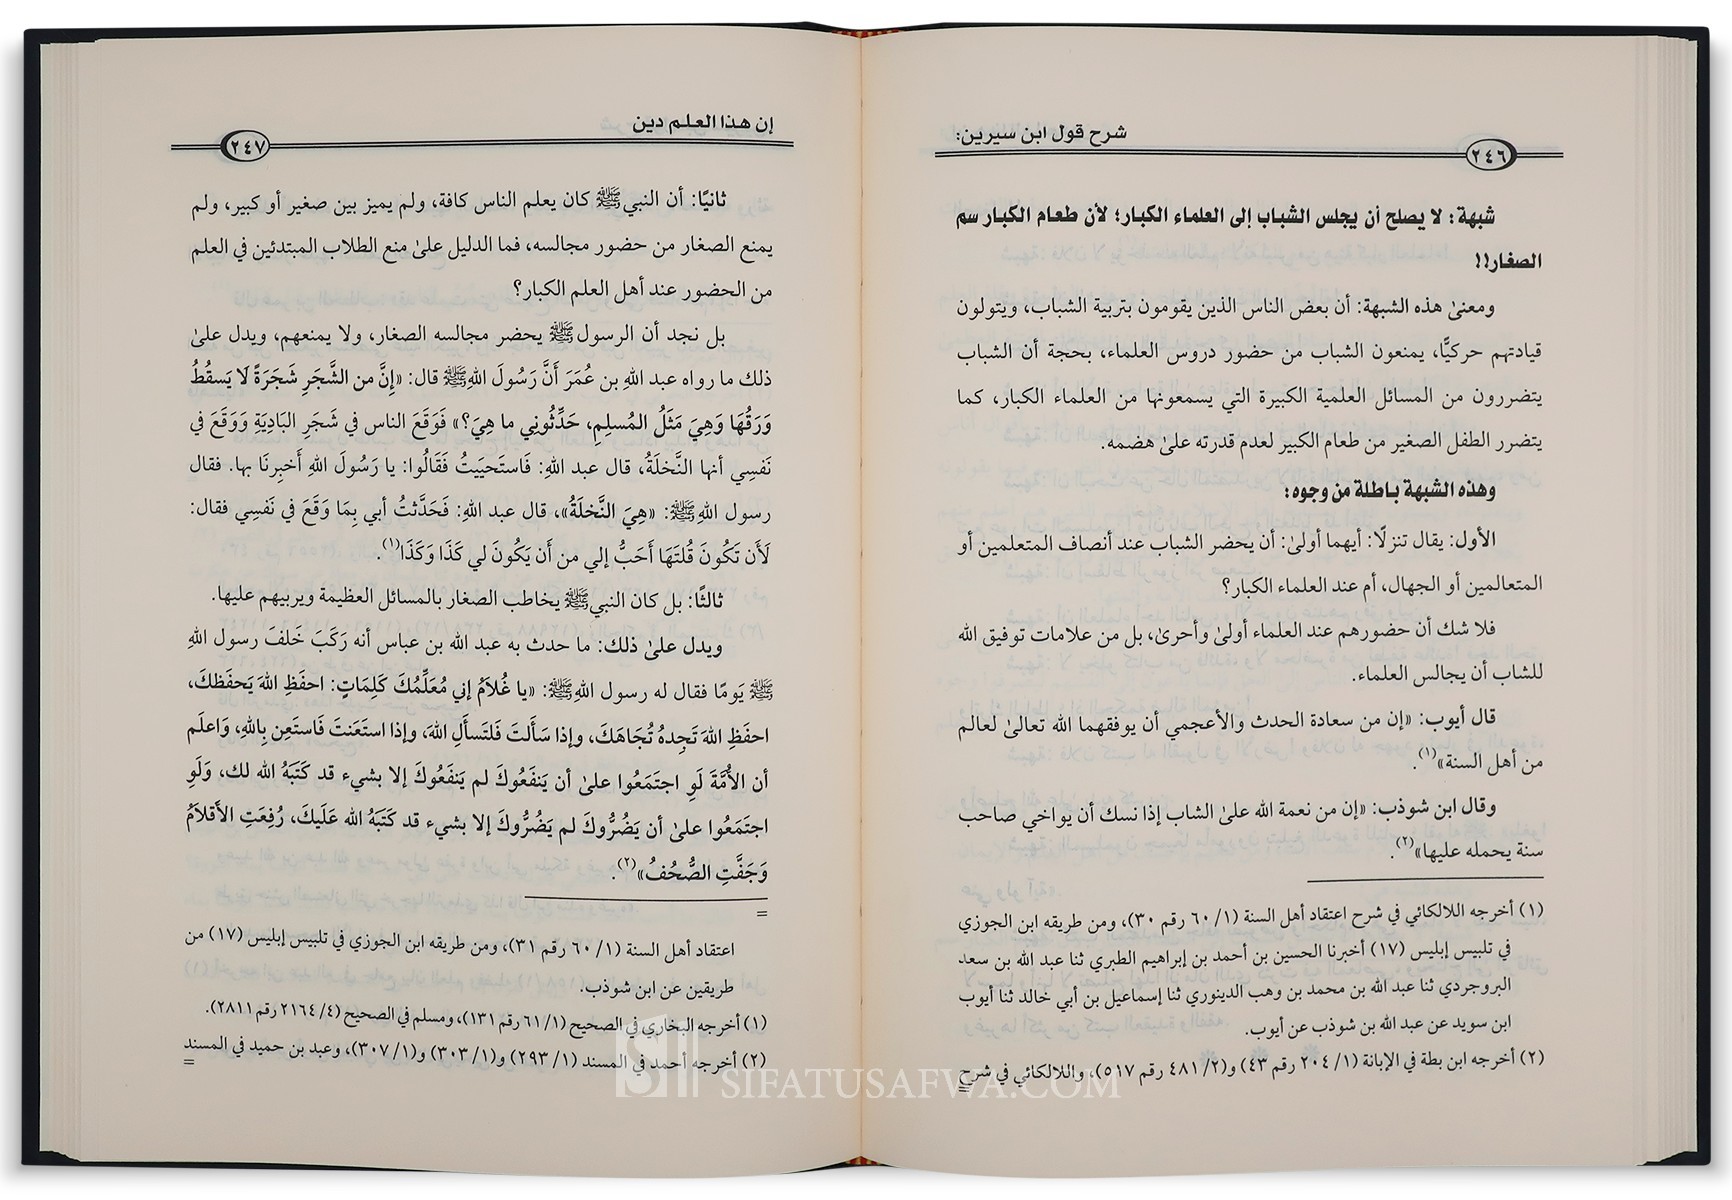 شرح قول ابن سيرين:
٢٤٦
شبهة: لا يصلح أن يجلس الشباب إلى العلماء الكبار؛ لأن طعام الكبار سم
الصغار!!
ومعنىٰ هذه الشبهة: أن بعض الناس الذين يقومون بتربية الشباب، ويتولون
قيادتهم حركيًّا، يمنعون الشباب من حضور دروس العلماء، بحجة أن الشباب
يتضررون من المسائل العلمية الكبيرة التي يسمعونها من العلماء الكبار، كما
يتضرر الطفل الصغير من طعام الكبير لعدم قدرته علىٰ هضمه.
وهذه الشبهة باطلة من وجوه:
الأول: يقال تنزلًا: أيهما أولىٰ: أن يحضر الشباب عند أنصاف المتعلمين أو
المتعالمين أو الجهال، أم عند العلماء الكبار؟
فلا شك أن حضورهم عند العلماء أولىٰ وأحرىٰ، بل من علامات توفيق الله
للشاب أن يجالس العلماء.
قال أيوب: «إن من سعادة الحدث والأعجمي أن يوفقهما الله تعالىٰ لعالم
من أهل السنة»(١).
وقال ابن شوذب: «إن من نعمة الله علىٰ الشاب إذا نسك أن يواخي صاحب
سنة يحمله عليها»(٢).
(١) أخرجه اللالكائي في شرح اعتقاد أهل السنة (١/ ٦٠ رقم ٣٠)، ومن طريقه ابن الجوزي
في تلبيس إبليس (١٧) أخبرنا الحسين بن أحمد بن إبراهيم الطبري ثنا عبد الله بن سعد
البروجردي ثنا عبد الله بن محمد بن وهب الدينوري ثنا إسماعيل بن أبي خالد ثنا أيوب
ابن سويد عن عبد الله بن شوذب عن أيوب.
(٢) أخرجه ابن بطة في الإبانة (١/ ٢٠٤ رقم ٤٣) و(٢/ ٤٨١ رقم ٥١٧)، واللالكائي في شرح
=
إن هذا العلم دين
٢٤٧
ثانيًا: أن النبي ﷺ كان يعلم الناس كافة، ولم يميز بين صغير أو كبير، ولم
يمنع الصغار من حضور مجالسه، فما الدليل علىٰ منع الطلاب المبتدئين في العلم
من الحضور عند أهل العلم الكبار؟
بل نجد أن الرسول ﷺ يحضر مجالسه الصغار، ولا يمنعهم، ويدل علىٰ
ذلك ما رواه عبد الله بن عُمَرَ أَنَّ رَسُولَ اللهِ ﷺ قال: «إِنَّ من الشَّجَرِ شَجَرَةً لَا يَسقُطُ
وَرَقُهَا وَهِيَ مَثَلُ المُسلِمِ، حَدِّثُونِي ما هِيَ؟» فَوَقَعَ الناس في شَجَرِ البَادِيَةِ وَوَقَعَ في
نَفسِي أنها النَّخلَةُ، قال عبد اللهِ: فَاستَحيَيتُ فَقَالُوا: يا رَسُولَ اللهِ أَخبِرنَا بها. فقال
رسول اللهِ ﷺ: «هِيَ النَّخلَةُ»، قال عبد اللهِ: فَحَدَّثتُ أبي بِمَا وَقَعَ في نَفسِي فقال:
لَأَن تَكُونَ قُلتَهَا أَحَبُّ إلي من أَن يَكُونَ لي كَذَا وَكَذَا(١).
ثالثًا: بل كان النبي ﷺ يخاطب الصغار بالمسائل العظيمة ويربيهم عليها.
ويدل علىٰ ذلك: ما حدث به عبد الله بن عباس أنه رَكَبَ خَلفَ رسول اللهِ
ﷺ يَومًا فقال له رسول اللهِ ﷺ: «يا غُلَامُ إني مُعَلِّمُكَ كَلِمَاتٍ: احفَظِ اللهَ يَحفَظكَ،
احفَظِ اللهَ تَجِدهُ تُجَاهَكَ، وإذا سَأَلتَ فَلتَسأَلِ اللهَ، وإذا استَعَنتَ فَاستَعِن بِاللهِ، وَاعلَم
أن الأُمَّةَ لَوِ اجتَمَعُوا علىٰ أن يَنفَعُوكَ لم يَنفَعُوكَ إلا بشيء قد كَتَبَهُ الله لك، وَلَوِ
اجتَمَعُوا علىٰ أن يَضُرُّوكَ لم يَضُرُّوكَ إلا بشيء قد كَتَبَهُ الله عَلَيكَ، رُفِعَتِ الأَقلَامُ
وَجَفَّتِ الصُّحُفُ»(٢).
=
اعتقاد أهل السنة (١/ ٦٠ رقم ٣١)، ومن طريقه ابن الجوزي في تلبيس إبليس (١٧) من
طريقين عن ابن شوذب.
(١) أخرجه البخاري في الصحيح (١/ ٦١ رقم ١٣١)، ومسلم في الصحيح (٤/ ٢١٦٤ رقم ٢٨١١).
(٢) أخرجه أحمد في المسند (١/ ٢٩٣) و(١/ ٣٠٣) و(١/ ٣٠٧)، وعبد بن حميد في المسند
=
SIFATUSAFWA.COM